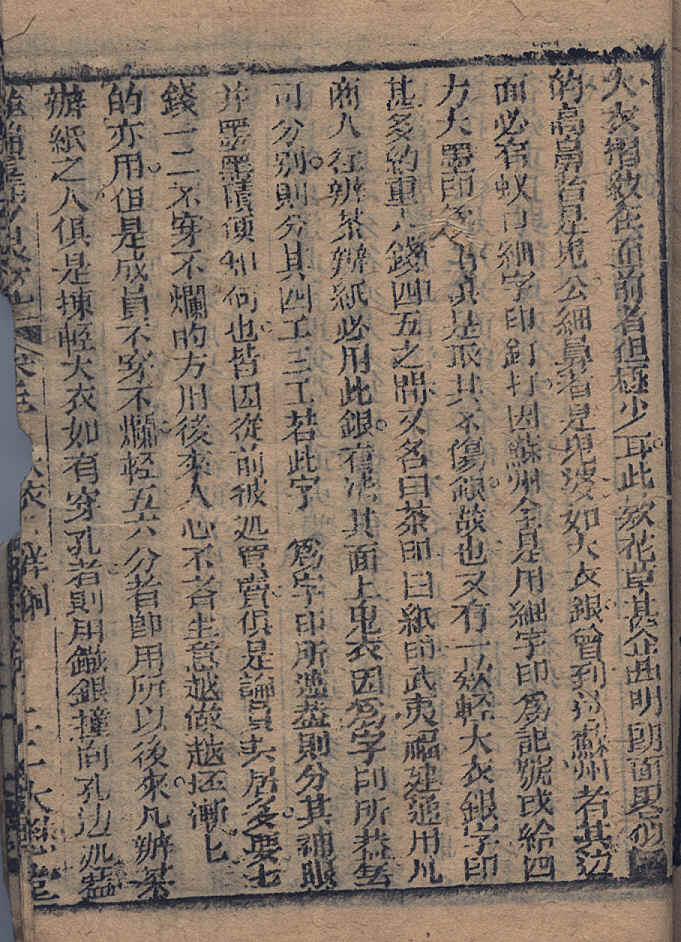 大衣縐紋在面前者但極少耳此欵花草甚企曲明朗面畧
的高鼻者是鬼公細鼻者是鬼婆如大衣銀曾到過蘇州者其边
面必有蚁口細字印釘打因蘇州全是用細字印為記號或給四
力大墨印 其是取其不傷銀故也又有一欵輕大衣銀字印
甚多約重 錢四五之間又名曰茶印曰紙印武夷福建通用凡
商人往辦茶辦紙必用此銀有 其面上鬼衣因為字印所 無
可分別則分其四工三工若此字 為字印所遮盖則分其補眼
并墨 便如何也皆因從前彼処買賣俱是論員共居多要七
錢一二不穿不爛的方用後來人心不古生意越做越 漸七
的亦用但是成員不穿不爛輕五六分者即用所以後來凡辦茶
辦紙之人俱是揀輕大衣如有穿孔者則用鏾銀撞向孔边処盖
大衣 祥銅